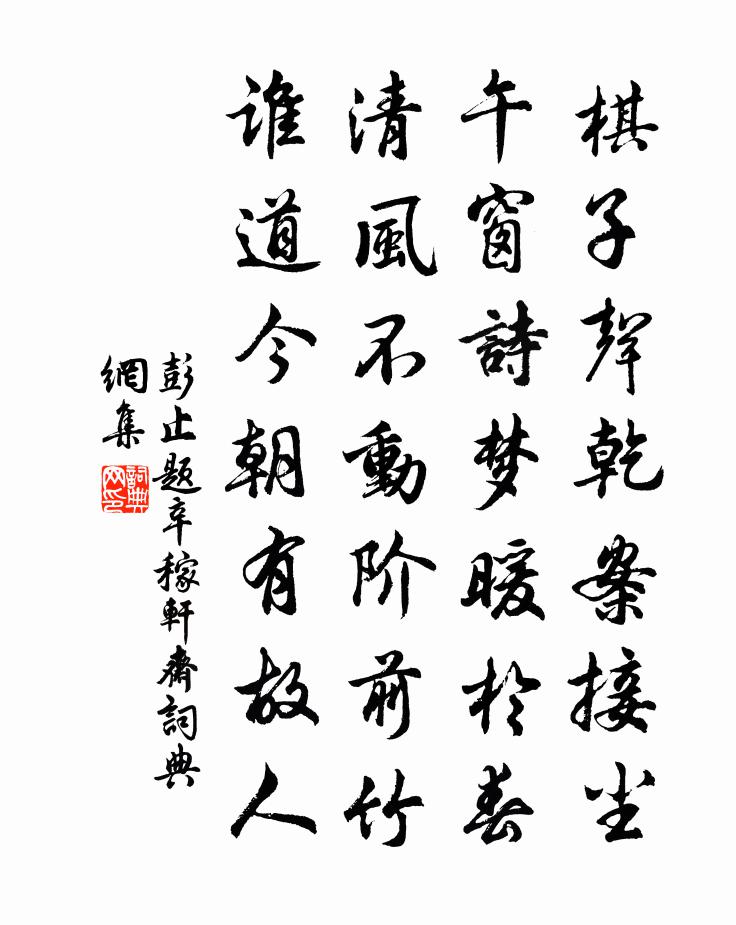 棋子聲乾案接尘
午窗詩梦暖於春
清風不動阶前竹
谁道今朝有故人
彭止题辛稼軒齋詞典
網集
詞典
网印